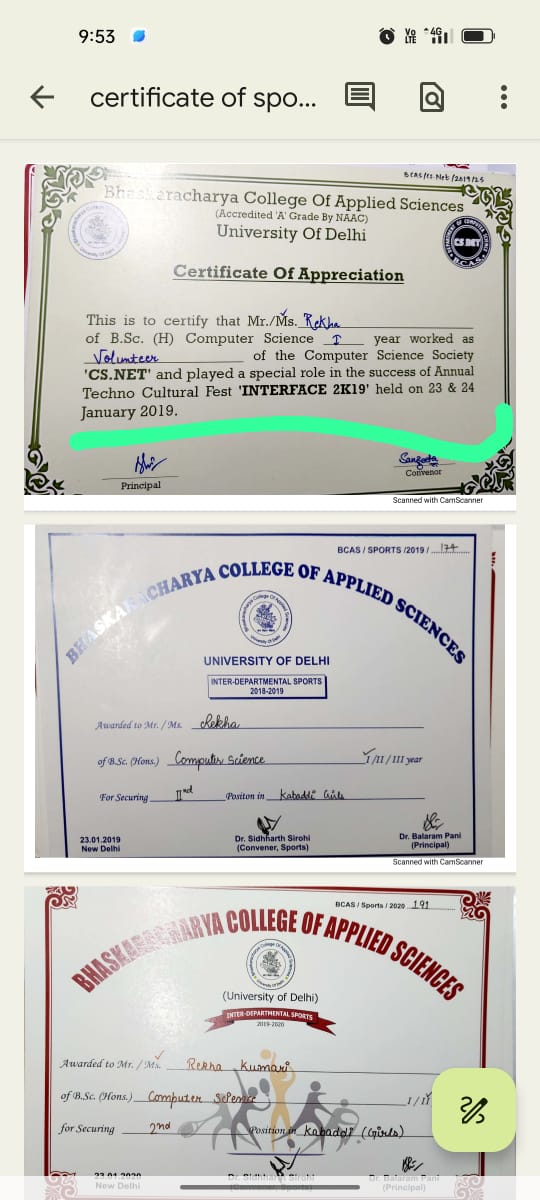 9:53
Vo LTE 4G
certificate of spo...
BCAS/CS.Net/2019/25
Bhaskaracharya College Of Applied Sciences
(Accredited 'A' Grade By NAAC)
University Of Delhi
CS NET
B.C.A.S.
Certificate Of Appreciation
This is to certify that Mr./Ms. Rekha
of B.Sc. (H) Computer Science I year worked as
Volunteer of the Computer Science Society
'CS.NET' and played a special role in the success of Annual
Techno Cultural Fest 'INTERFACE 2K19' held on 23 & 24
January 2019.
Principal
Sangeeta
Convenor
Scanned with CamScanner
BCAS / SPORTS /2019 / 174
BHASKARACHARYA COLLEGE OF APPLIED SCIENCES
UNIVERSITY OF DELHI
INTER-DEPARTMENTAL SPORTS
2018-2019
Awarded to Mr. / Ms. Rekha
of B.Sc. (Hons.) Computer Science I/II/III year
For Securing IInd Positon in Kabaddi Girls
23.01.2019
New Delhi
Dr. Sidhharth Sirohi
(Convener, Sports)
Dr. Balaram Pani
(Principal)
Scanned with CamScanner
BCAS / Sports / 2020 191
BHASKARACHARYA COLLEGE OF APPLIED SCIENCES
(University of Delhi)
INTER-DEPARTMENTAL SPORTS
2019-2020
Awarded to Mr. / Ms. Rekha Kumari
of B.Sc. (Hons.) Computer Science I/II
for Securing 2nd Position in Kabaddi (Girls)
23.01.2020
New Delhi
Dr. Sidhharth Sirohi
(Convener, Sports)
Dr. Balaram Pani
(Principal)